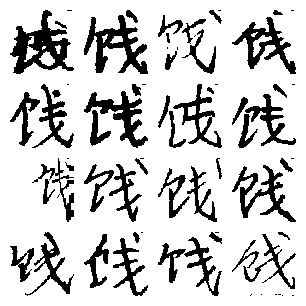 饯饯饯饯
饯饯饯饯
饯饯饯饯
饯饯饯饯